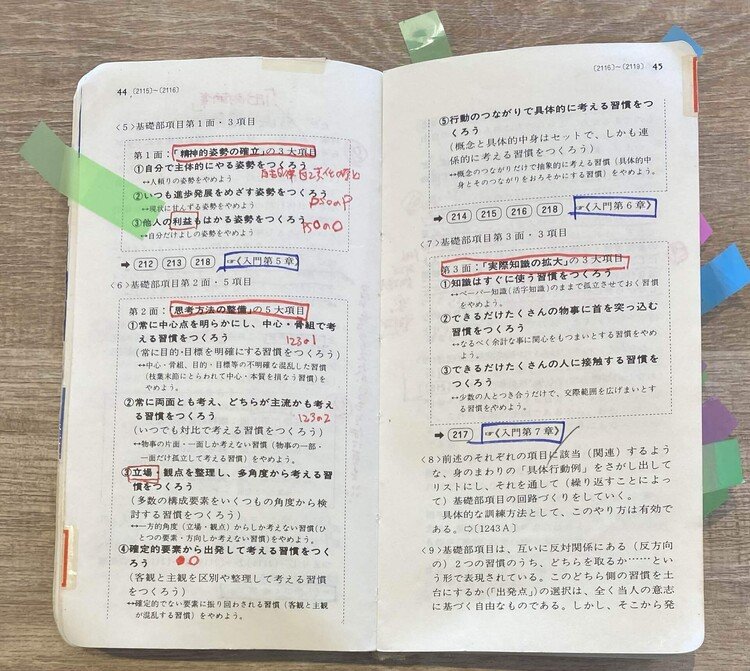 44 〔2115〕~〔2116〕
〈5〉基礎部項目第1面・3項目
第1面:「精神的姿勢の確立」の3大項目
①自分で主体的にやる姿勢をつくろう
↔人頼りの姿勢をやめよう
②いつも進歩発展をめざす姿勢をつくろう
PSのP
↔現状に甘んずる姿勢をやめよう
③他人の利益もはかる姿勢をつくろう
PSのO
↔自分だけよしの姿勢をやめよう
➡ 212 213 218 ☞《入門第5章》
〈6〉基礎部項目第2面・5項目
第2面:「思考方法の整備」の5大項目
①常に中心点を明らかにし、中心・骨組で考
える習慣をつくろう
123の1
(常に目的・目標を明確にする習慣をつくろう)
↔中心・骨組、目的・目標等の不明確な混乱した習慣
(枝葉末節にとらわれて中心・本質を損なう習慣)を
やめよう。
②常に両面とも考え、どちらが主流かも考え
る習慣をつくろう
123の2
(いつでも対比で考える習慣をつくろう)
↔物事の片面・一面しか考えない習慣(物事の一部・
一面だけ孤立して考える習慣)をやめよう。
③立場・観点を整理し、多角度から考える習
慣をつくろう
(多数の構成要素をいくつもの角度から検
討する習慣をつくろう)
↔一方的角度(立場・観点)からしか考えない習慣(ひ
とつの要素・方向しか考えない習慣)をやめよう。
④確定的要素から出発して考える習慣をつく
ろう
(客観と主観を区別や整理して考える習慣
をつくろう)
↔確定的でない要素に振り回される習慣(客観と主観
が混乱する習慣)をやめよう。
〔2116〕~〔2119〕 45
⑤行動のつながりで具体的に考える習慣をつ
くろう
(概念と具体的中身はセットで、しかも連
係的に考える習慣をつくろう)
↔概念のつながりだけで抽象的に考える習慣(具体的中
身とそのつながりをおろそかにする習慣)をやめよう。
➡ 214 215 216 218 ☞《入門第6章》
〈7〉基礎部項目第3面・3項目
第3面:「実際知識の拡大」の3大項目
①知識はすぐに使う習慣をつくろう
↔ペーパー知識(活字知識)のままで孤立させておく習慣
をやめよう。
②できるだけたくさんの物事に首を突っ込む
習慣をつくろう
↔なるべく余計な事に関心をもつまいとする習慣をやめ
よう。
③できるだけたくさんの人に接触する習慣を
つくろう
↔少数の人とつき合うだけで、交際範囲を広げまいとす
る習慣をやめよう。
➡ 217 ☞《入門第7章》
〈8〉前述のそれぞれの項目に該当(関連)するよう
な、身のまわりの「具体行動例」をさがし出して
リストにし、それを通して(繰り返すことによっ
て)基礎部項目の回路づくりをしていく。
具体的な訓練方法として、このやり方は有効で
ある。⇨〔1243A〕
〈9〉基礎部項目は、互いに反対関係にある(反方向
の)2つの習慣のうち、どちらを取るか……という
形で表現されている。このどちら側の習慣を土
台にするか(「出発点」)の選択は、全く当人の意志
に基づく自由なものである。しかし、そこから発